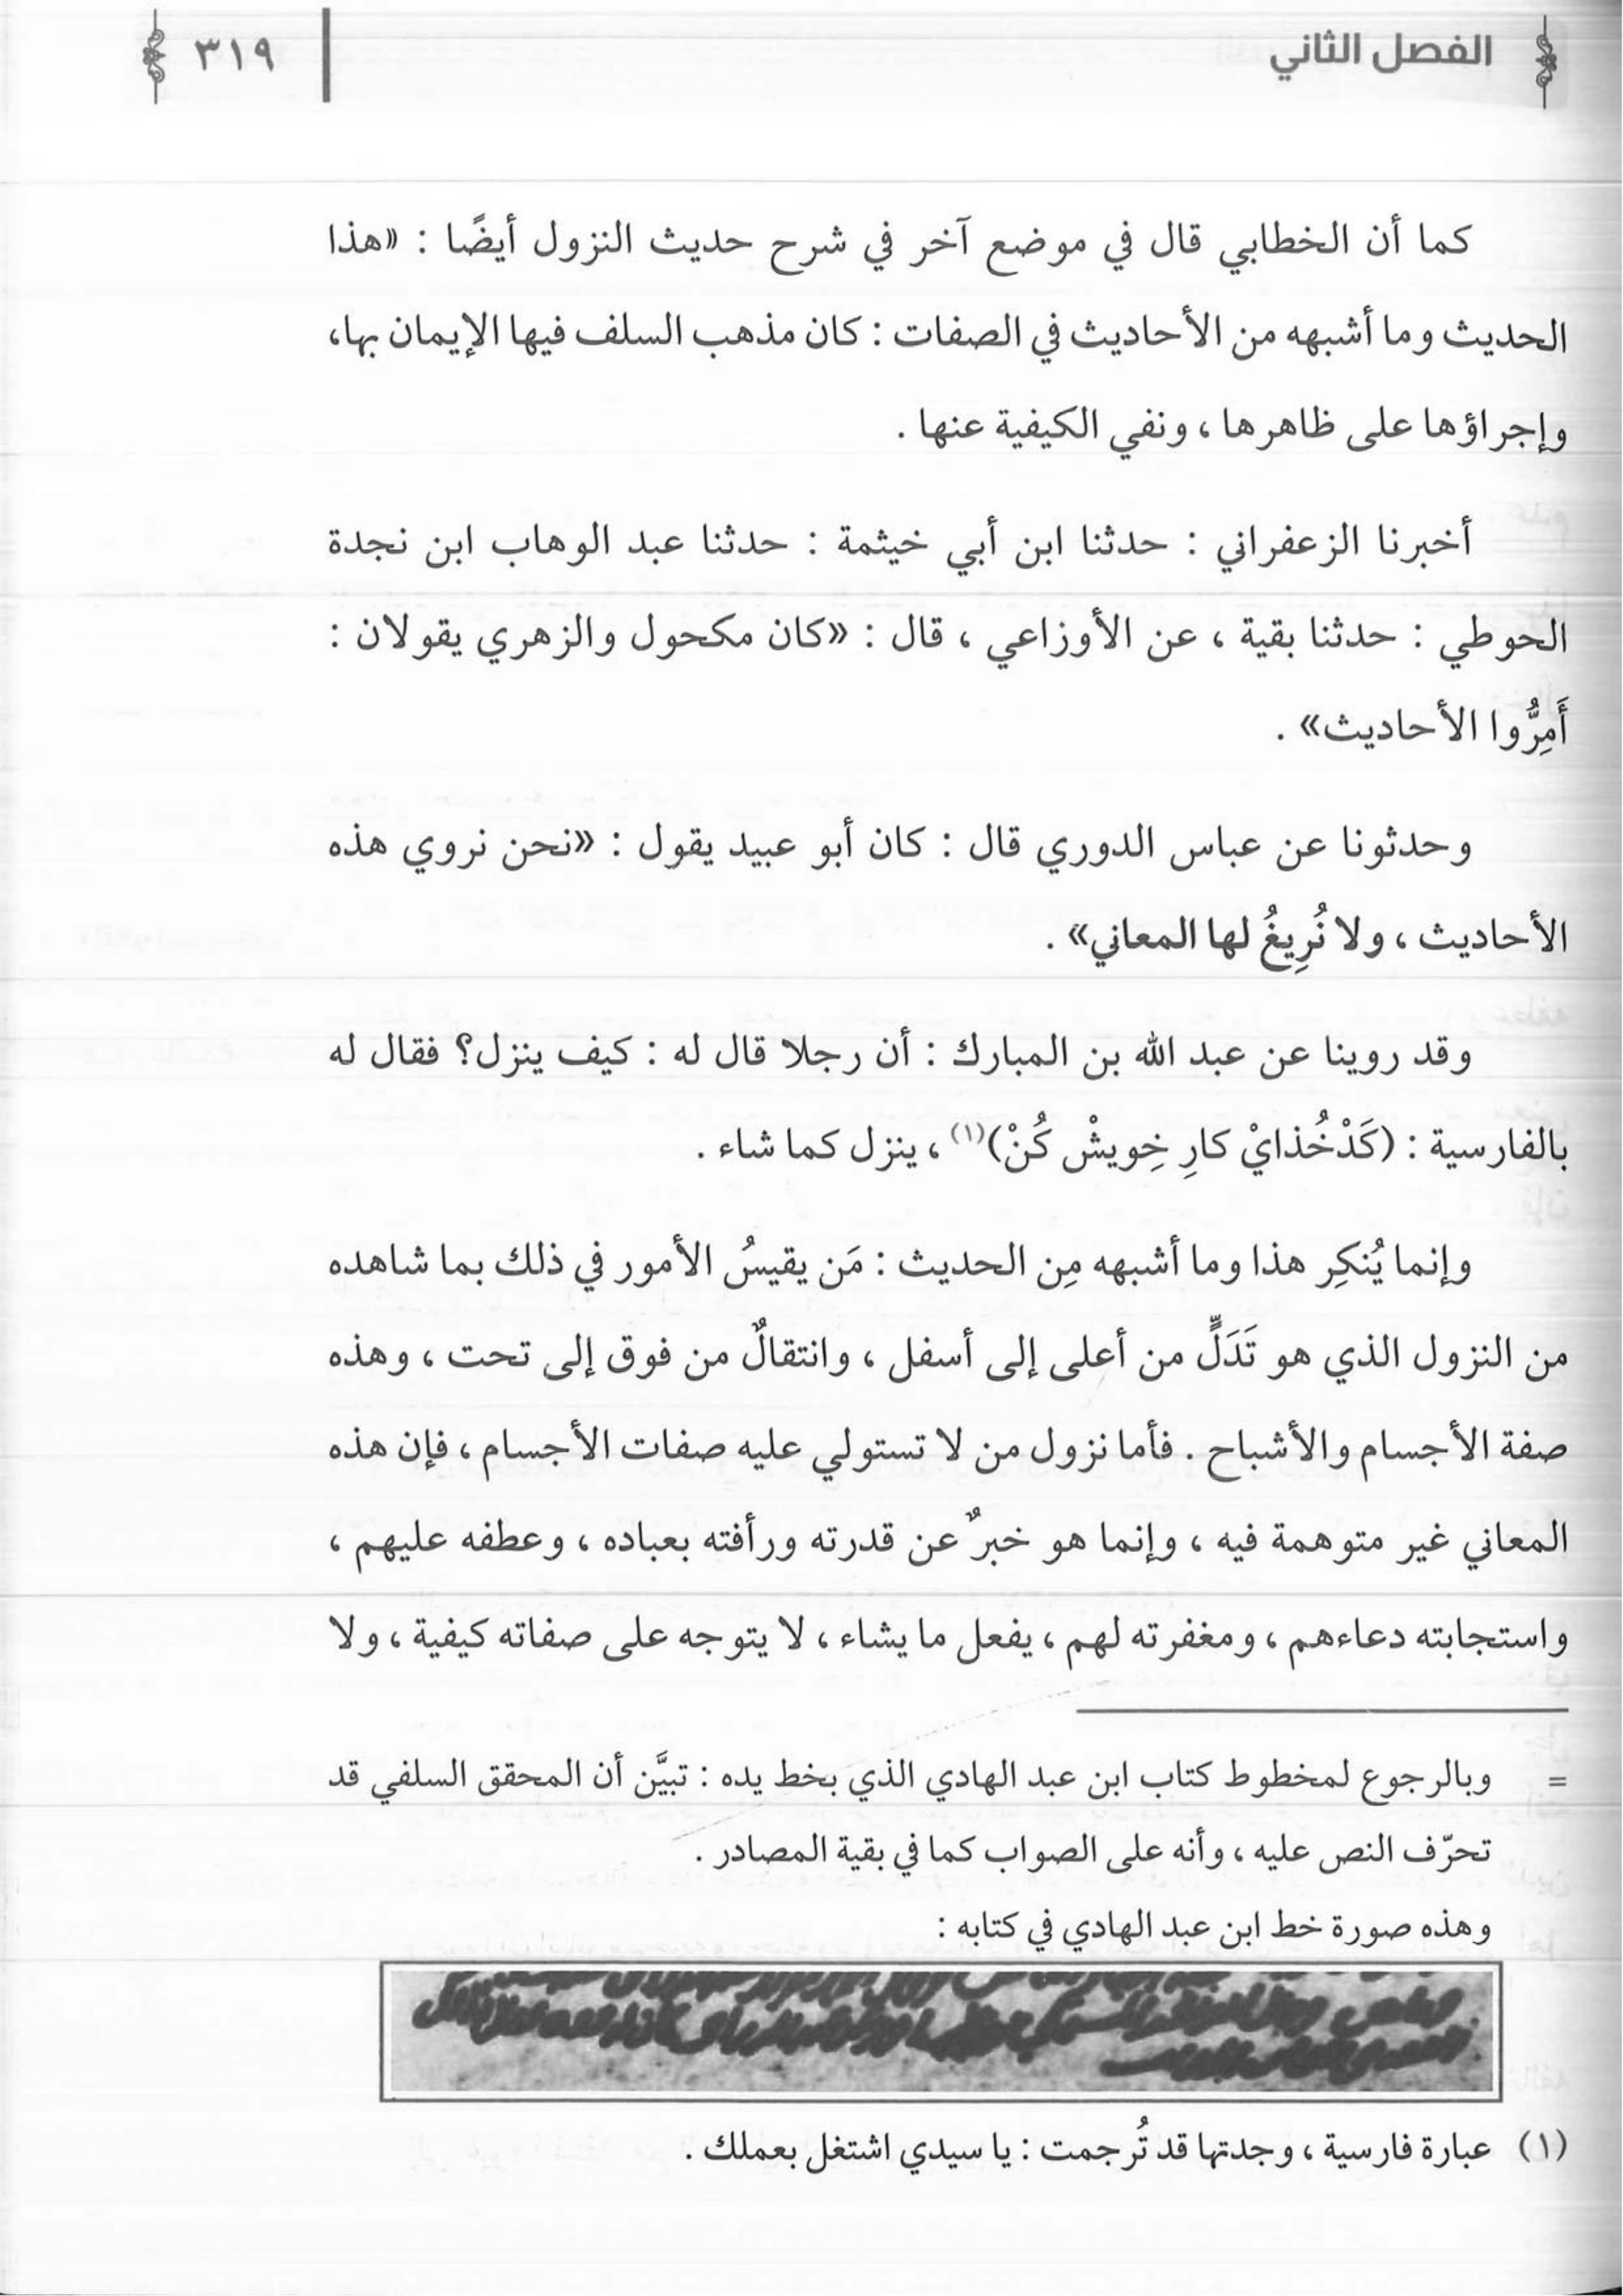 الفصل الثاني
٣١٩
كما أن الخطابي قال في موضع آخر في شرح حديث النزول أيضًا : «هذا
الحديث وما أشبهه من الأحاديث في الصفات : كان مذهب السلف فيها الإيمان بها،
وإجراؤها على ظاهرها ، ونفي الكيفية عنها .
أخبرنا الزعفراني : حدثنا ابن أبي خيثمة : حدثنا عبد الوهاب ابن نجدة
الحوطي : حدثنا بقية ، عن الأوزاعي ، قال : «كان مكحول والزهري يقولان :
أَمِرُّوا الأحاديث» .
وحدثونا عن عباس الدوري قال : كان أبو عبيد يقول : «نحن نروي هذه
الأحاديث ، ولا نُرِيغُ لها المعاني» .
وقد روينا عن عبد الله بن المبارك : أن رجلا قال له : كيف ينزل؟ فقال له
بالفارسية : (كَدْخُذايْ كارِ خِويشْ كُنْ)(١) ، ينزل كما شاء .
وإنما يُنكِر هذا وما أشبهه مِن الحديث : مَن يقيسُ الأمور في ذلك بما شاهده
من النزول الذي هو تَدَلٍّ من أعلى إلى أسفل ، وانتقالٌ من فوق إلى تحت ، وهذه
صفة الأجسام والأشباح . فأما نزول من لا تستولي عليه صفات الأجسام ، فإن هذه
المعاني غير متوهمة فيه ، وإنما هو خبرٌ عن قدرته ورأفته بعباده ، وعطفه عليهم ،
واستجابته دعاءهم ، ومغفرته لهم ، يفعل ما يشاء ، لا يتوجه على صفاته كيفية ، ولا
= وبالرجوع لمخطوط كتاب ابن عبد الهادي الذي بخط يده : تبيَّن أن المحقق السلفي قد
تحرّف النص عليه ، وأنه على الصواب كما في بقية المصادر .
وهذه صورة خط ابن عبد الهادي في كتابه :
(١) عبارة فارسية ، وجدتها قد تُرجمت : يا سيدي اشتغل بعملك .